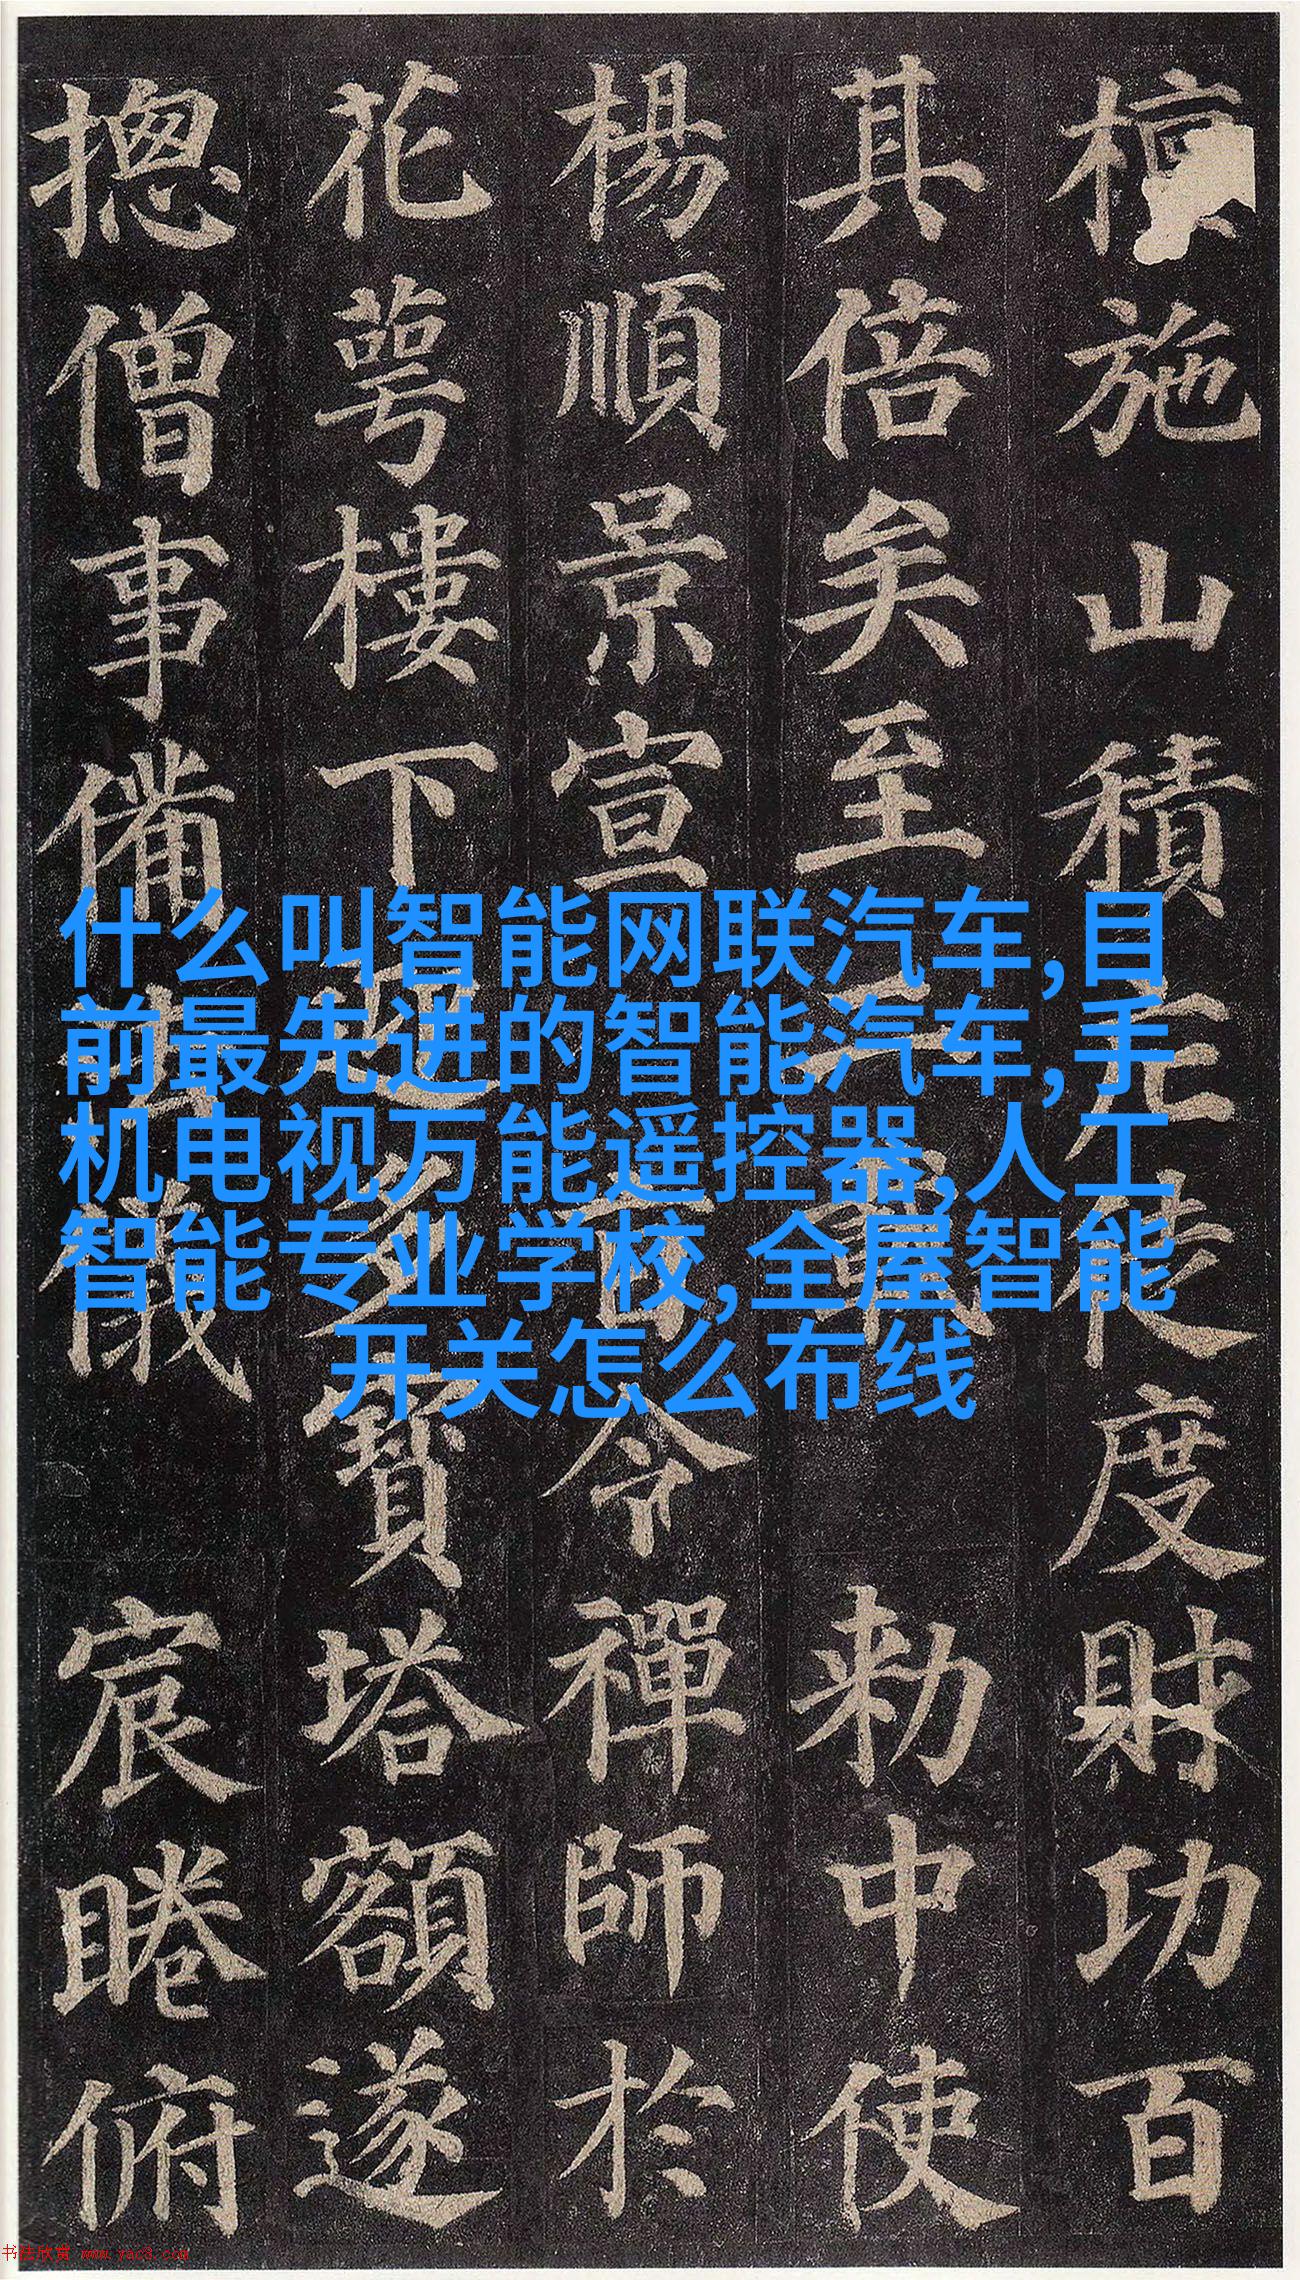 什么叫智能网联汽车,目
前最先进的智能汽车,手
机电视万能遥控器,人工
智能专业学校,全屋智能
开关怎么布线
檀施山積庀徒度財功百
其倍矣至二載勅中使
楊順景宣旨令禪師於
花萼樓下迎多寶塔額遂
摠僧事備法儀宸睠俯
书法欣赏 www.yac3.com